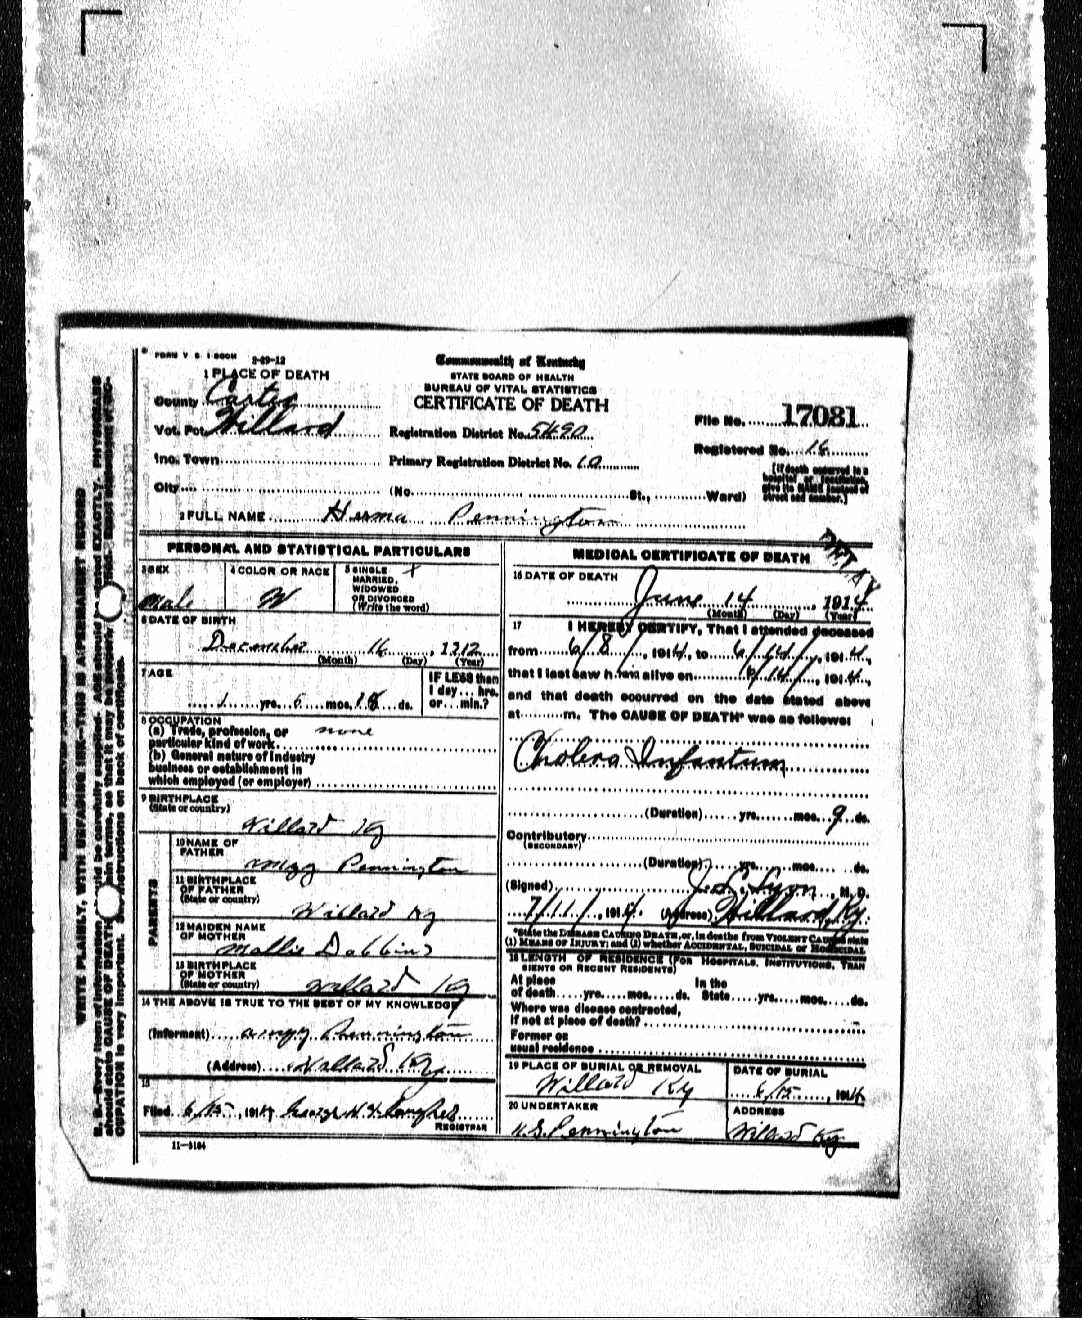 FORM V. S. 1-500M 2-29-12
Commonwealth of Kentucky
STATE BOARD OF HEALTH
BUREAU OF VITAL STATISTICS
CERTIFICATE OF DEATH
1 PLACE OF DEATH
County Carter
Vot. Pct. Willard
Registration District No. 5490
File No. 17081
Inc. Town
Primary Registration District No. 10
Registered No. 16
City (No. St., Ward)
[If death occurred in a
hospital or institution,
give its NAME instead of
street and number.]
2 FULL NAME Herma Pennington
PERSONAL AND STATISTICAL PARTICULARS
3 SEX
Male
4 COLOR OR RACE
W
5 SINGLE X
MARRIED,
WIDOWED
OR DIVORCED
(Write the word)
6 DATE OF BIRTH
December 16, 1912
(Month) (Day) (Year)
7 AGE
1 yrs. 5 mos. 18 ds.
IF LESS than
1 day... hrs.
or... min.?
8 OCCUPATION
(a) Trade, profession, or none
particular kind of work
(b) General nature of industry
business or establishment in
which employed (or employer)
9 BIRTHPLACE
(State or country)
Willard Ky
PARENTS
10 NAME OF
FATHER
Pennington
11 BIRTHPLACE
OF FATHER
(State or country)
Willard Ky
12 MAIDEN NAME
OF MOTHER
Mollie Dobbins
13 BIRTHPLACE
OF MOTHER
(State or country)
Willard Ky
14 THE ABOVE IS TRUE TO THE BEST OF MY KNOWLEDGE
(Informant) Pennington
(Address) Willard Ky
15
Filed 6/15, 1914 George H.
REGISTRAR
11-5184
MEDICAL CERTIFICATE OF DEATH
16 DATE OF DEATH
June 14, 1914
(Month) (Day) (Year)
17 I HEREBY CERTIFY, That I attended deceased
from 6/8/, 1914, to 6/14/, 1914,
that I last saw him alive on 6/14/, 1914,
and that death occurred on the date stated above
at m. The CAUSE OF DEATH* was as follows:
Cholera Infantum
(Duration) yrs. mos. 9 ds.
Contributory
(SECONDARY)
(Duration) yrs. mos. ds.
(Signed) J. L. Lyon, M. D.
7/11/, 1914. (Address) Willard, Ky.
*State the DISEASE CAUSING DEATH, or, in deaths from VIOLENT CAUSES state
(1) MEANS OF INJURY; and (2) whether ACCIDENTAL, SUICIDAL or HOMICIDAL
18 LENGTH OF RESIDENCE (FOR HOSPITALS, INSTITUTIONS, TRAN
SIENTS OR RECENT RESIDENTS)
At place In the
of death yrs. mos. ds. State yrs. mos. ds.
Where was disease contracted,
if not at place of death?
Former or
usual residence
19 PLACE OF BURIAL OR REMOVAL
Willard Ky
DATE OF BURIAL
6/15, 1914
20 UNDERTAKER
Pennington
ADDRESS
Willard Ky
WRITE PLAINLY, WITH UNFADING INK—THIS IS A PERMANENT RECORD